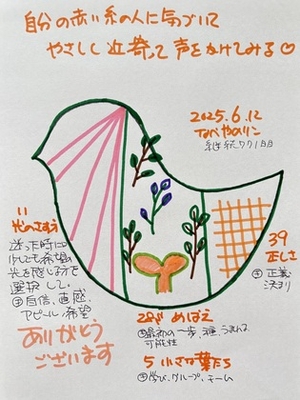 自分の赤い糸の人に気づいて
やさしく近寄って声をかけてみる♡
2025.6.12
なべやのリン
継続771日目
11
光のさすう
迷った時に
少しでも希望の
光を感じる方を
選択して
自信、直感、
アピール、希望
ありがとう
ございます
39
正しさ
正義
決まり
28が めばえ
最初の一歩、種、うまれる
可能性
5 小さな葉たち
学び、グループ、チーム